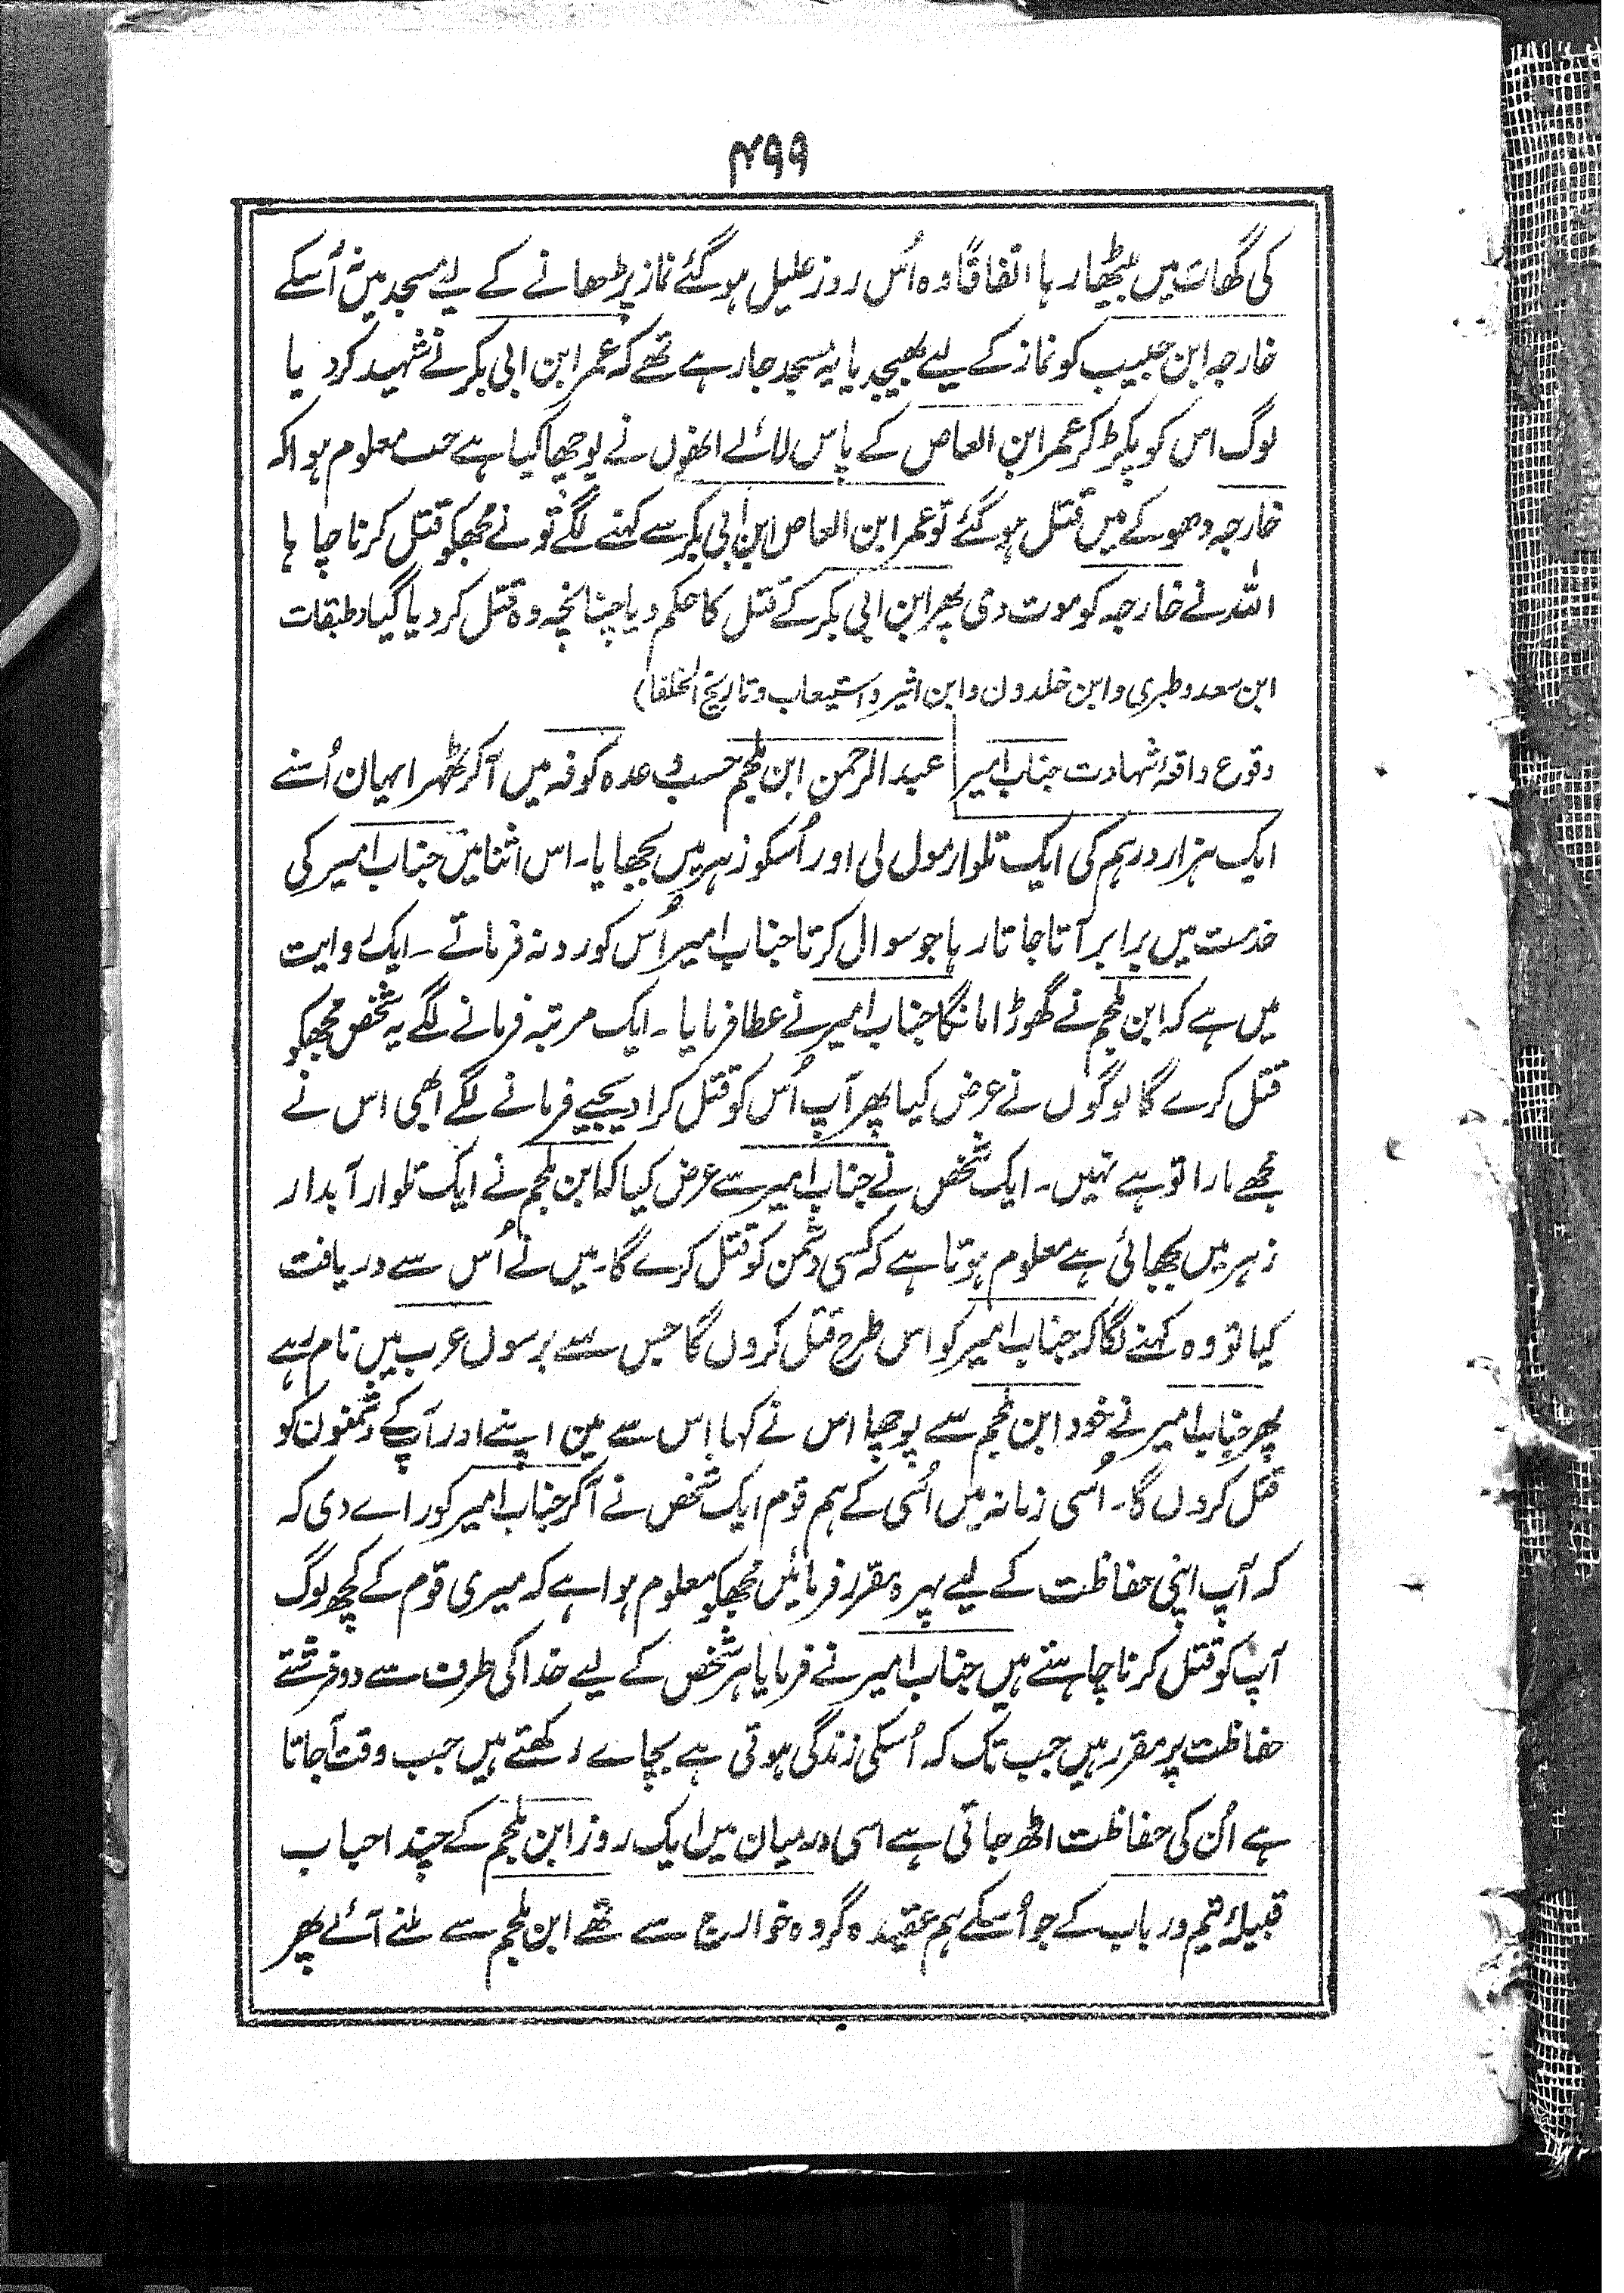 ۴۹۹
کی گھات میں بیٹھا رہا اتفاقاً وہ اُس روز علیل ہو گئے نماز پڑھانے کے لیے مسجد میں اُسکے
خارجہ ابن حبیب کو نماز کے لیے بھیجدیا یہ مسجد جا رہے تھے کہ عمر ابن ابی بکر نے شہید کر دیا
لوگ اس کو پکڑ کر عمر ابن العاص کے پاس لائے انھوں نے پوچھا کیا ہے جب معلوم ہوا کہ
خارجہ دھوکے میں قتل ہو گئے تو عمر ابن العاص ابن ابی بکر سے کہنے لگے تو نے مجھکو قتل کرنا چاہا
اللہ نے خارجہ کو موت دی پھر ابن ابی بکر کے قتل کا حکم دیا چنانچہ وہ قتل کر دیا گیا (طبقات
ابن سعد و طبری و ابن خلدون و ابن اثیر و استیعاب و تاریخ الخلفا)
وقوع واقعۂ شہادت جناب امیر عبد الرحمن ابن ملجم حسب وعدہ کوفہ میں آکر ٹھہرا یہان اُسنے
ایک ہزار درہم کی ایک تلوار مول لی اور اُسکو زہر میں بجھایا۔ اس اثنا میں جناب امیر کی
خدمت میں برابر آتا جاتا رہا جو سوال کرتا جناب امیر اُس کو رد نہ فرماتے۔ ایک روایت
میں ہے کہ ابن ملجم نے گھوڑا مانگا جناب امیر نے عطا فرمایا۔ ایک مرتبہ فرمانے لگے یہ شخص مجھکو
قتل کرے گا لوگوں نے عرض کیا پھر آپ اُس کو قتل کرا دیجیے فرمانے لگے ابھی اس نے
مجھے مارا تو ہے نہیں۔ ایک شخص نے جناب امیر سے عرض کیا کہ ابن ملجم نے ایک تلوار آبدار
زہر میں بجھائی ہے معلوم ہوتا ہے کہ کسی دشمن کو قتل کرے گا۔ میں نے اُس سے دریافت
کیا تو وہ کہنے لگا کہ جناب امیر کو اس طرح قتل کروں گا جس سے برسوں عرب میں نام رہے
پھر جناب امیر نے خود ابن ملجم سے پوچھا اس نے کہا اس سے مین اپنے اور آپ کے دشمنون کو
قتل کروں گا۔ اُسی زمانہ میں اُسی کے ہم قوم ایک شخص نے آکر جناب امیر کو راے دی کہ
کہ آپ اپنی حفاظت کے لیے پہرہ مقرر فرمائیں مجھکو معلوم ہوا ہے کہ میری قوم کے کچھ لوگ
آپ کو قتل کرنا چاہتے ہیں جناب امیر نے فرمایا ہر شخص کے لیے خدا کی طرف سے دو فرشتے
حفاظت پر مقرر ہیں جب تک کہ اُسکی زندگی ہوتی ہے بچاے رکھتے ہیں جب وقت آجاتا
ہے اُن کی حفاظت اٹھ جاتی ہے اسی درمیان میں ایک روز ابن ملجم کے چند احباب
قبیلۂ تیم و رباب کے جو اُسکے ہم عقیدہ گروہ خوارج سے تھے ابن ملجم سے ملنے آئے پھر